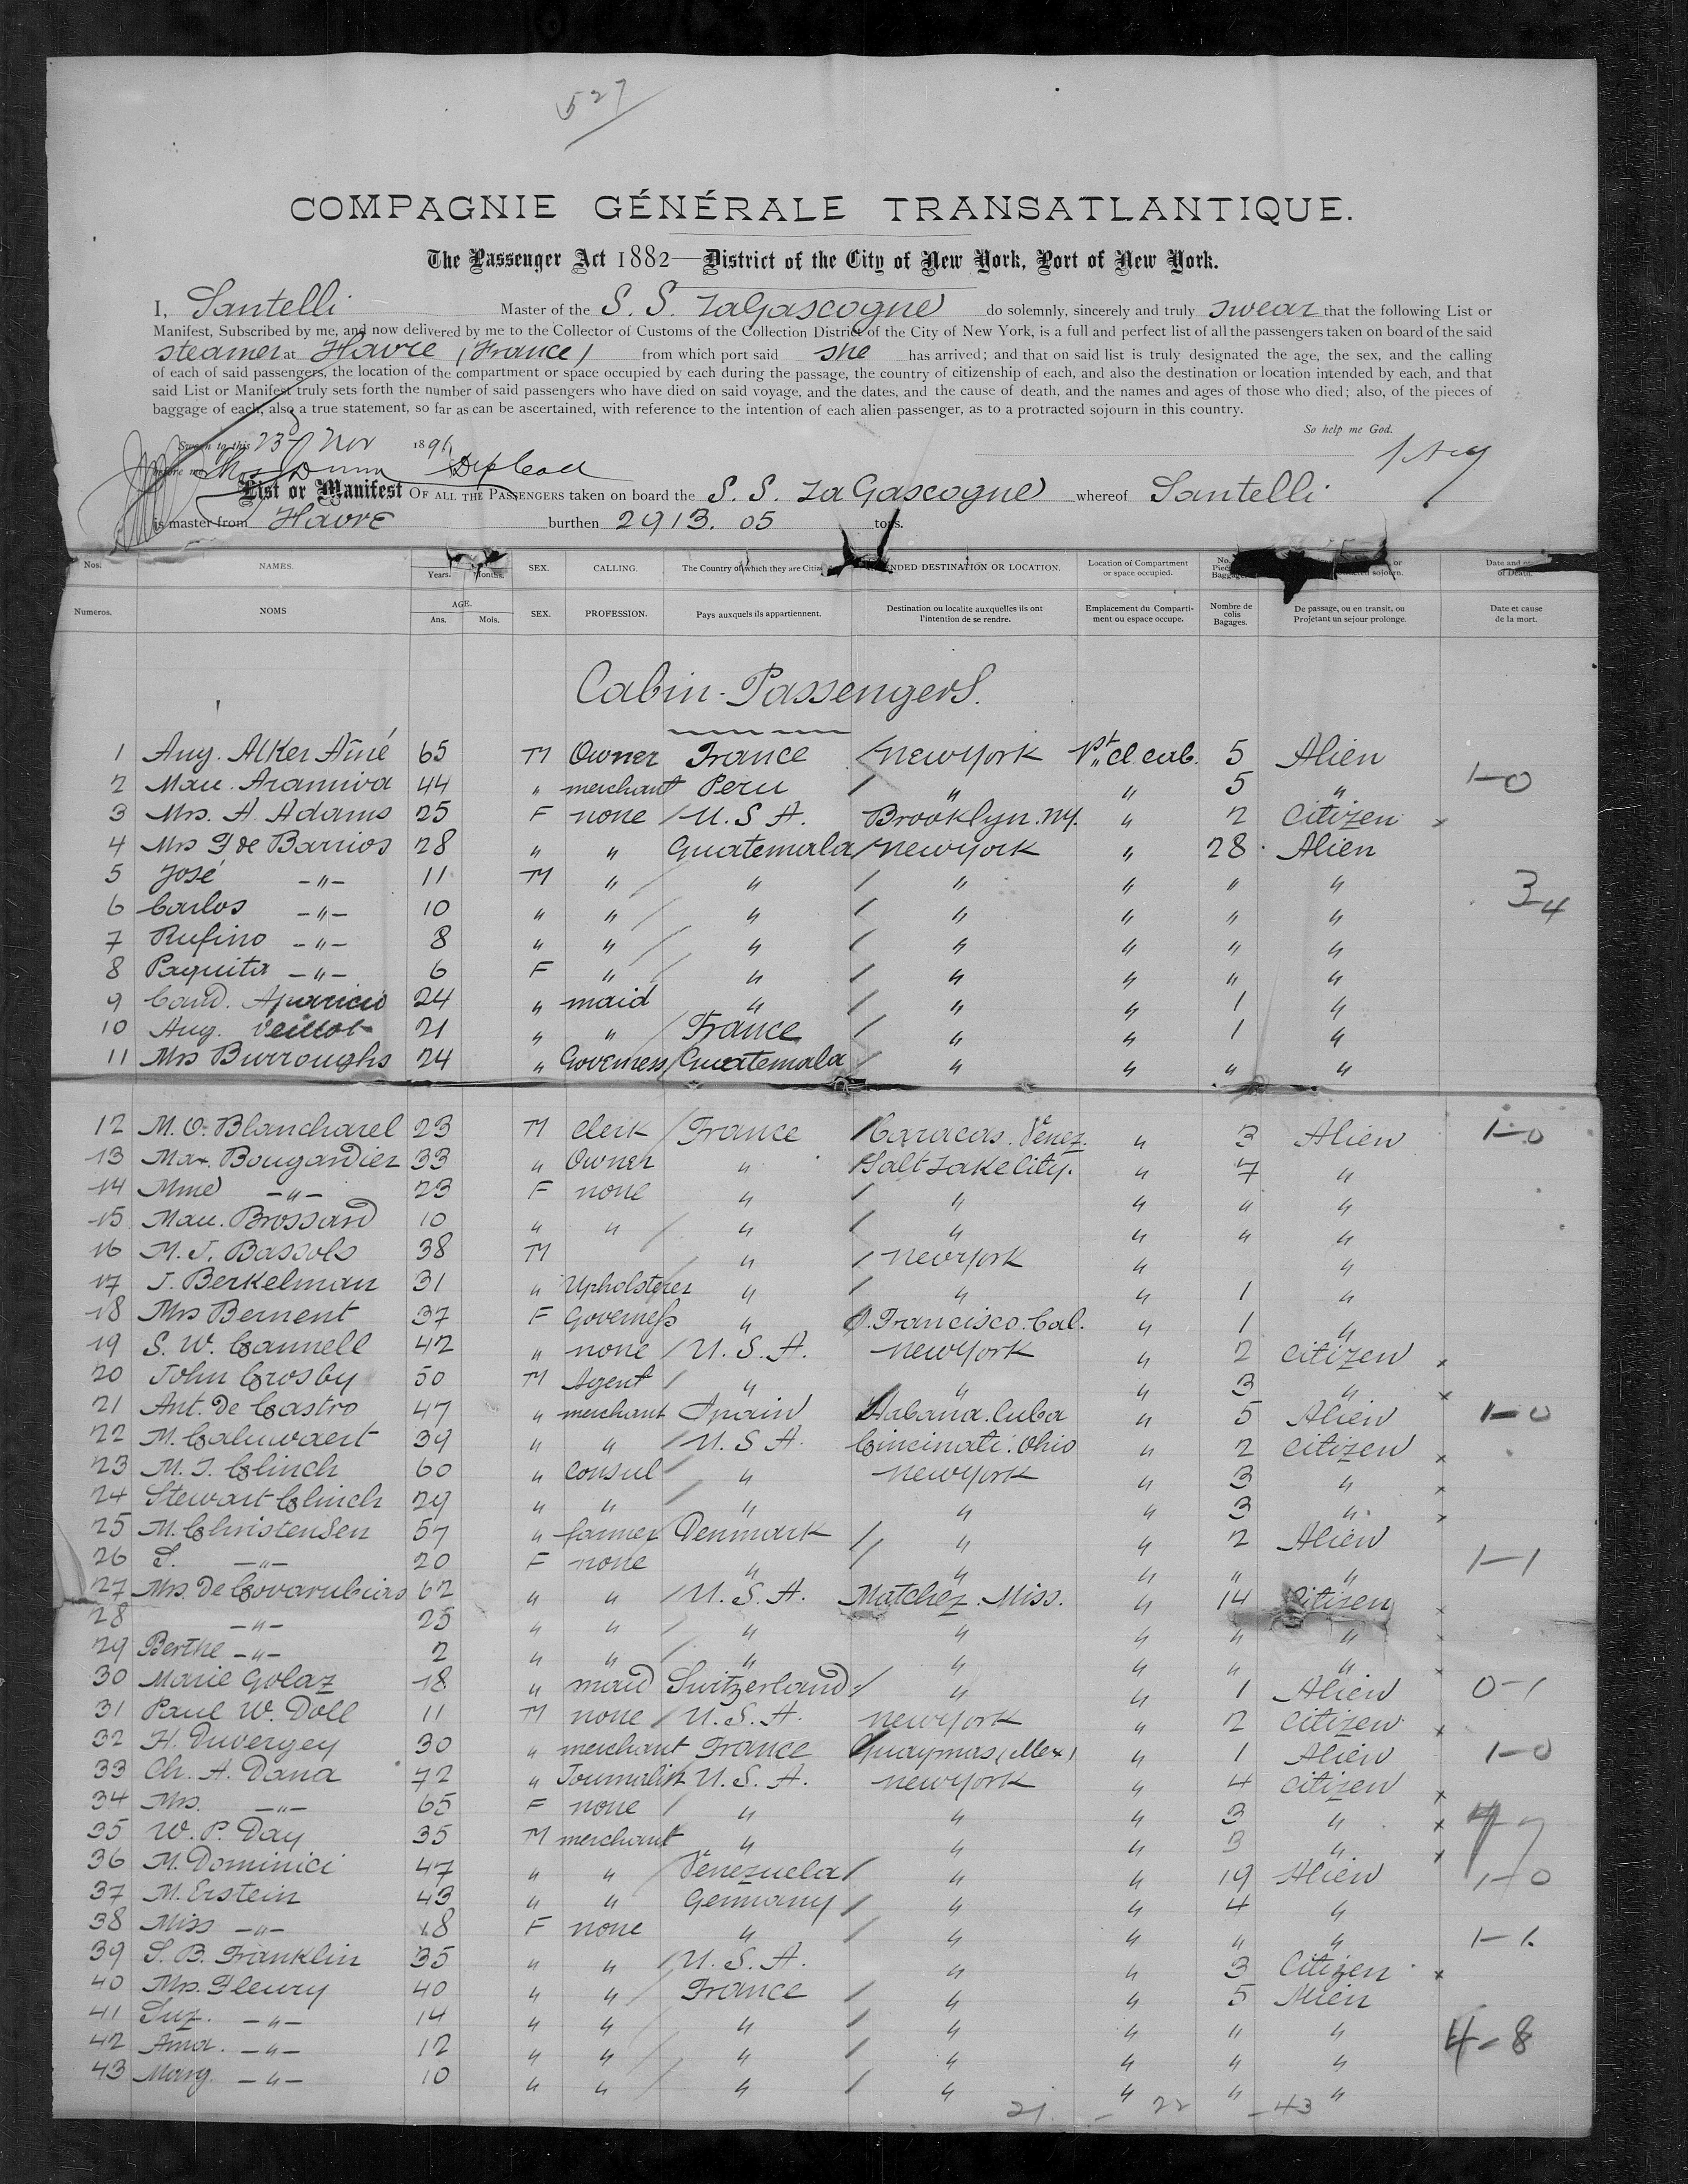 527
COMPAGNIE GÉNÉRALE TRANSATLANTIQUE.
The Passenger Act 1882—District of the City of New York, Port of New York.
I, Santelli Master of the S. S. LaGascogne do solemnly, sincerely and truly swear that the following List or
Manifest, Subscribed by me, and now delivered by me to the Collector of Customs of the Collection District of the City of New York, is a full and perfect list of all the passengers taken on board of the said
steamer at Havre (France) from which port said she has arrived; and that on said list is truly designated the age, the sex, and the calling
of each of said passengers, the location of the compartment or space occupied by each during the passage, the country of citizenship of each, and also the destination or location intended by each, and that
said List or Manifest truly sets forth the number of said passengers who have died on said voyage, and the dates, and the cause of death, and the names and ages of those who died; also, of the pieces of
baggage of each, also a true statement, so far as can be ascertained, with reference to the intention of each alien passenger, as to a protracted sojourn in this country.
So help me God.
Sworn to this 23 Nov 189
before me Dunn
List or Manifest OF ALL THE PASSENGERS taken on board the S. S. LaGascogne whereof Santelli
is master from Havre burthen 2913.05 tons.
Nos. NAMES. Years. Months. SEX. CALLING. The Country of which they are INTENDED DESTINATION OR LOCATION. Location of Compartment or space occupied. No. sojourn. Date and of Death.
Numeros. NOMS AGE. Ans. Mois. SEX. PROFESSION. Pays auxquels ils appartiennent. Destination ou localite auxquelles ils ont l'intention de se rendre. Emplacement du Compartiment ou espace occupe. Nombre de colis Bagages. De passage, ou en transit, ou Projetant un sejour prolonge. Date et cause de la mort.
Cabin-Passengers.
1 Aug. Alker Aîné 65 M Owner France New York 1st cl. cab. 5 Alien
2 Mau. Aramiva 44 " merchant Peru " " 5 " 1-0
3 Mrs. A. Adams 25 F none U.S.A. Brooklyn. NY. " 2 Citizen x
4 Mrs de Barrios 28 " " Guatemala New York " 28 Alien
5 José -"- 11 M " " " " " "
6 Carlos -"- 10 " " " " " " " 3-4
7 Rufino -"- 8 " " " " " " "
8 Paquita -"- 6 F " " " " " "
9 Cand. Aparicio 24 " maid " " " 1 "
10 Aug. Veillot 21 " " France " " 1 "
11 Mrs Burroughs 24 " Governess Guatemala " " " "
12 M. O. Blancharel 23 M Clerk France Caracas. Venez. " 3 Alien 1-0
13 Max. Bougardier 33 " Owner " Salt Lake City. " 7 "
14 Mme -"- 23 F none " " " " "
15 Mau. Brossard 10 " " " " " " "
16 M. J. Bassols 38 M " New York " "
17 J. Berkelman 31 " Upholsterer " " " 1 "
18 Mrs Bernent 37 F Governess " S. Francisco. Cal. " 1 "
19 S. W. Cannell 42 " none U.S.A. New York " 2 citizen x
20 John Crosby 50 M Agent " " " 3 " x
21 Ant. De Castro 47 " merchant Spain Habana. Cuba " 5 Alien 1-0
22 M. Caluwaert 39 " " U.S.A. Cincinati. Ohio " 2 citizen x
23 M. J. Clinch 60 " Consul " New York " 3 " x
24 Stewart Clinch 29 " " " " " 3 " x
25 M. Christensen 57 " farmer Denmark " " 2 Alien
26 S. -"- 20 F none " " " " " 1-1
27 Mrs. De Covarubias 62 " " U.S.A. Matchez. Miss. " 14 Citizen x
28 -"- 25 " " " " " " " x
29 Berthe -"- 2 " " " " " " " x
30 Marie Golaz 18 " maid Switzerland " " 1 Alien 0-1
31 Paul W. Doll 11 M none U.S.A. New York " 2 citizen x
32 H. Duvergey 30 " merchant France Guaymas (Mex) " 1 Alien 1-0
33 Ch. A. Dana 72 " Journalist U.S.A. New York " 4 citizen x
34 Mrs. -"- 65 F none " " " 3 " x
35 W. P. Day 35 M merchant " " " 3 " x
36 M. Dominici 47 " " Venezuela " " 19 Alien 1-0
37 M. Erstein 43 " " Germany " " 4 "
38 Miss -"- 18 F none " " " " " 1-1
39 S. B. Franklin 35 " " U.S.A. " " 3 Citizen x
40 Mrs. Fleury 40 " " France " " 5 Alien
41 Suz. -"- 14 " " " " " " "
42 Ama. -"- 12 " " " " " " " 4-8
43 Marg. -"- 10 " " " " " " "
21 - 22 - 43